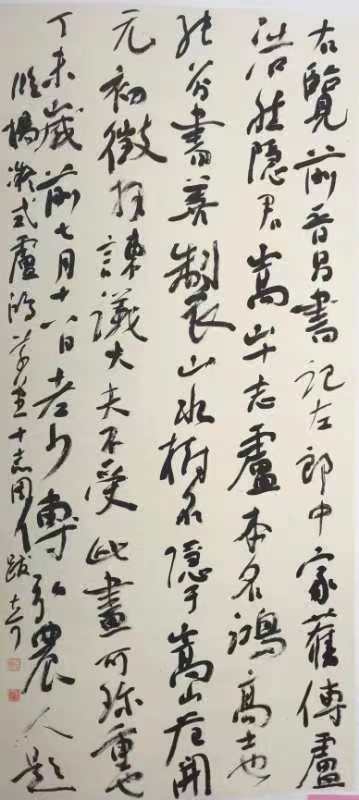 右覽前晉昌書記左郎中家舊傳盧
浩然隱居嵩山十志盧本名鴻高士也
能八分書善製山水樹石隱于嵩山唐開
元初徵拜諫議大夫不受此畫可珍重也
丁未歲前七月十八日老少傅弘農人題
臨楊凝式盧鴻草堂十志圖跋